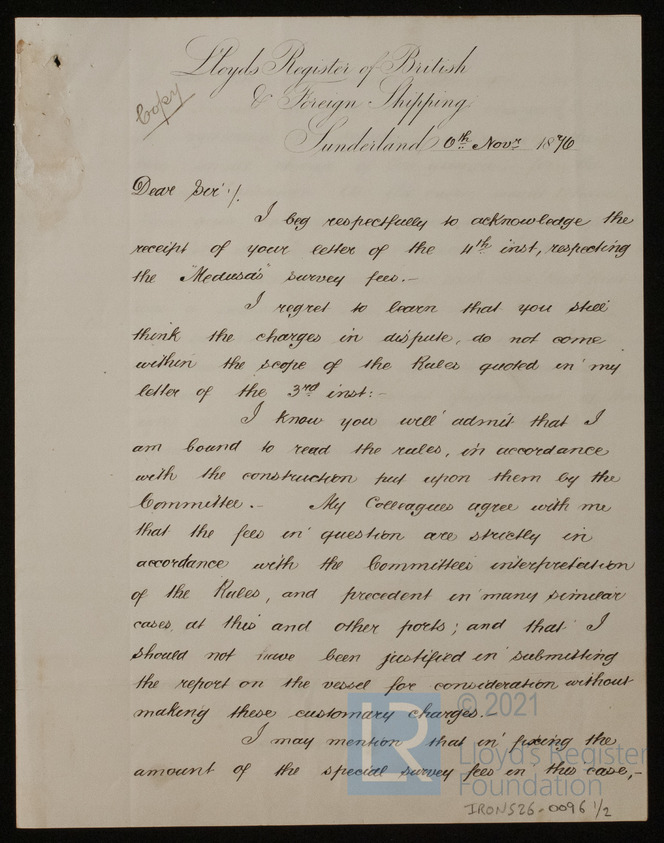 Lloyds Register of British
& Foreign Shipping.
Copy
Sunderland 6th Novr 1876
Dear Sir:/.
I beg respectfully to acknowledge the
receipt of your letter of the 4th inst, respecting
the "Medusa's" survey fees.—
I regret to learn that you still
think the charges in dispute, do not come
within the scope of the Rules quoted in my
letter of the 3rd inst:—
I know you will admit that I
am bound to read the rules, in accordance
with the construction put upon them by the
Committee.— My Colleagues agree with me
that the fees in question are strictly in
accordance with the Committee's interpretation
of the Rules, and precedent in many similar
cases, at this and other ports; and that I
should not have been justified in submitting
the report on the vessel for consideration without
making these customary charges.
I may mention that in fixing the
amount of the special survey fees in this case,—
© 2021
Lloyd's Register
Foundation
LR
IRON526-0096 1/2